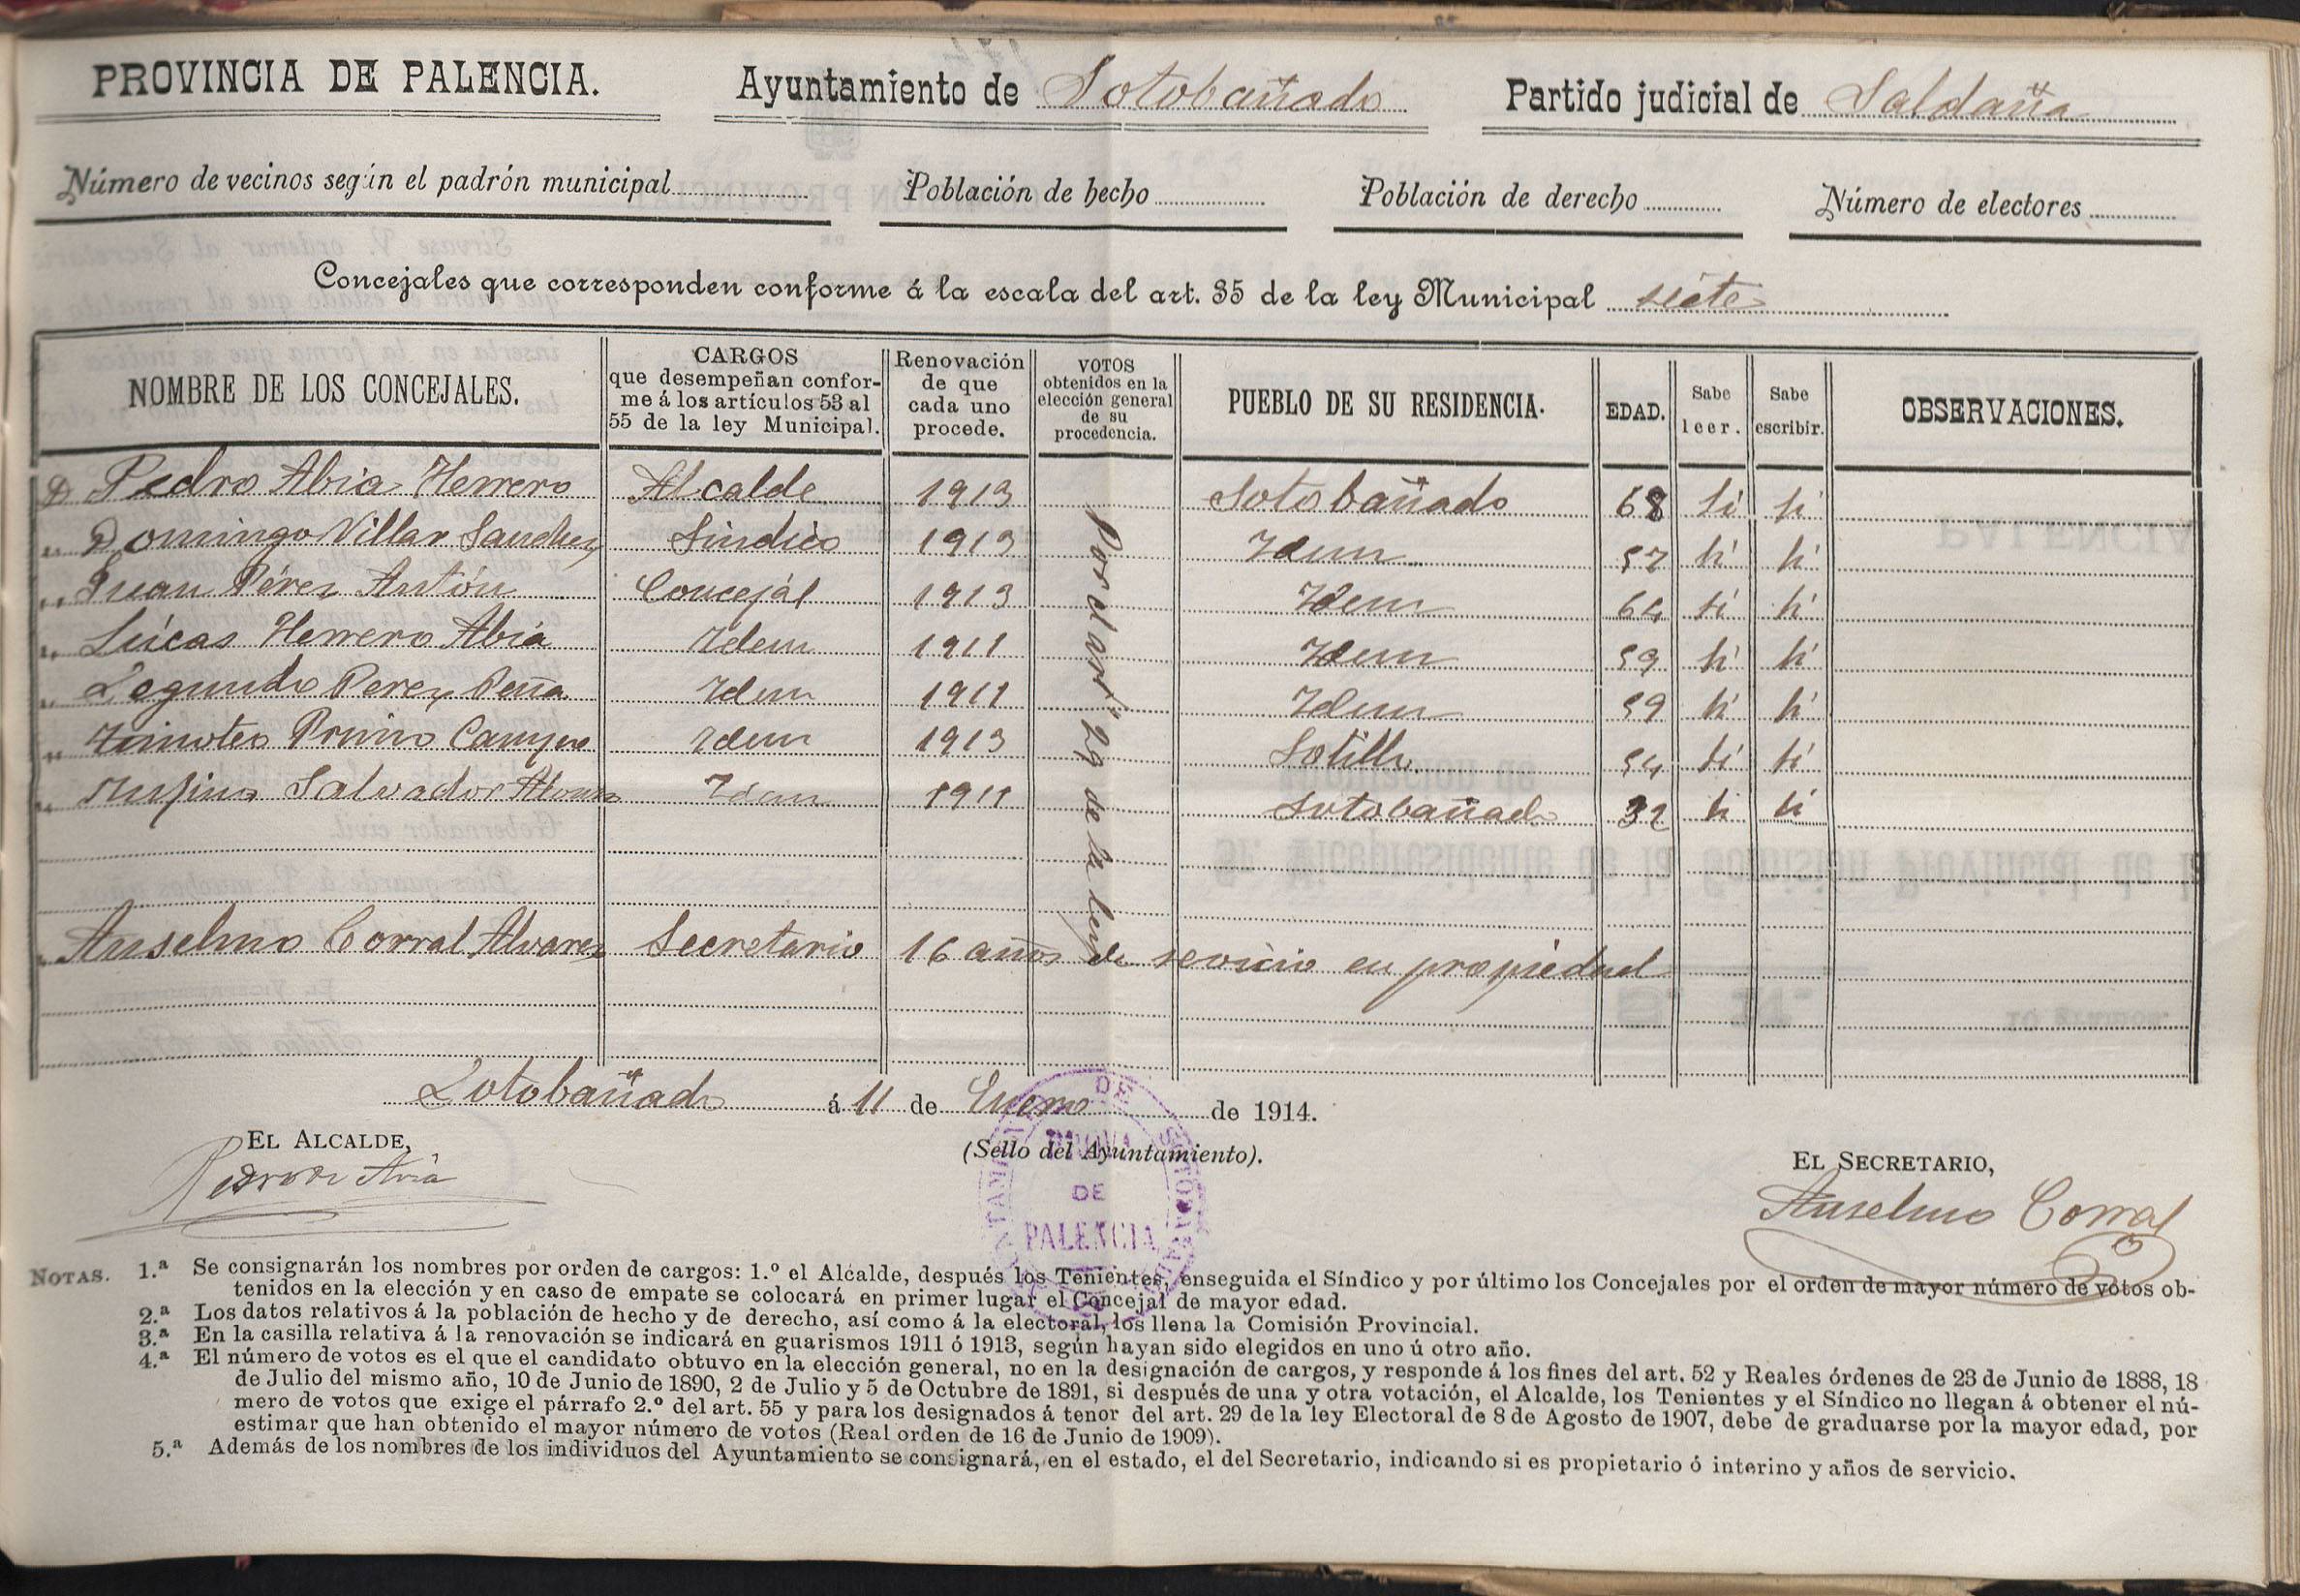 PROVINCIA DE PALENCIA. Ayuntamiento de Sotobañado Partido judicial de Saldaña
Número de vecinos según el padrón municipal Población de hecho Población de derecho Número de electores
Concejales que corresponden conforme á la escala del art. 35 de la ley Municipal siete
NOMBRE DE LOS CONCEJALES. CARGOS que desempeñan conforme á los artículos 53 al 55 de la ley Municipal. Renovación de que cada uno procede. VOTOS obtenidos en la elección general de su procedencia. PUEBLO DE SU RESIDENCIA. EDAD. Sabe leer. Sabe escribir. OBSERVACIONES.
D Pedro Abia Herrero Alcalde 1913 Sotobañado 68 si si
" Domingo Villar Sanchez Sindico 1913 Idem 57 si si
" Juan Pérez Antón Concejál 1913 Idem 64 si si
" Lúcas Herrero Abia Idem 1911 Idem 59 si si
" Segundo Perez Peña Idem 1911 Idem 59 si si
" Timoteo Primo Campo Idem 1913 Sotillo 54 si si
" Rufino Salvador Alonso Idem 1911 Sotobañado 32 si si
Por el artº 29 de la ley
" Anselmo Corral Alvarez Secretario 16 años de servicio en propiedad
Sotobañado á 11 de Enero de 1914.
EL ALCALDE,
(Sello del Ayuntamiento).
EL SECRETARIO,
Pedro Abia
Anselmo Corral
DE
PALENCIA
NOTAS. 1.ª Se consignarán los nombres por orden de cargos: 1.º el Alcalde, después los Tenientes, enseguida el Síndico y por último los Concejales por el orden de mayor número de votos ob-
tenidos en la elección y en caso de empate se colocará en primer lugar el Concejal de mayor edad.
2.ª Los datos relativos á la población de hecho y de derecho, así como á la electoral, los llena la Comisión Provincial.
3.ª En la casilla relativa á la renovación se indicará en guarismos 1911 ó 1913, según hayan sido elegidos en uno ú otro año.
4.ª El número de votos es el que el candidato obtuvo en la elección general, no en la designación de cargos, y responde á los fines del art. 52 y Reales órdenes de 23 de Junio de 1888, 18
de Julio del mismo año, 10 de Junio de 1890, 2 de Julio y 5 de Octubre de 1891, si después de una y otra votación, el Alcalde, los Tenientes y el Síndico no llegan á obtener el nú-
mero de votos que exige el párrafo 2.º del art. 55 y para los designados á tenor del art. 29 de la ley Electoral de 8 de Agosto de 1907, debe de graduarse por la mayor edad, por
estimar que han obtenido el mayor número de votos (Real orden de 16 de Junio de 1909).
5.ª Además de los nombres de los individuos del Ayuntamiento se consignará, en el estado, el del Secretario, indicando si es propietario ó interino y años de servicio.